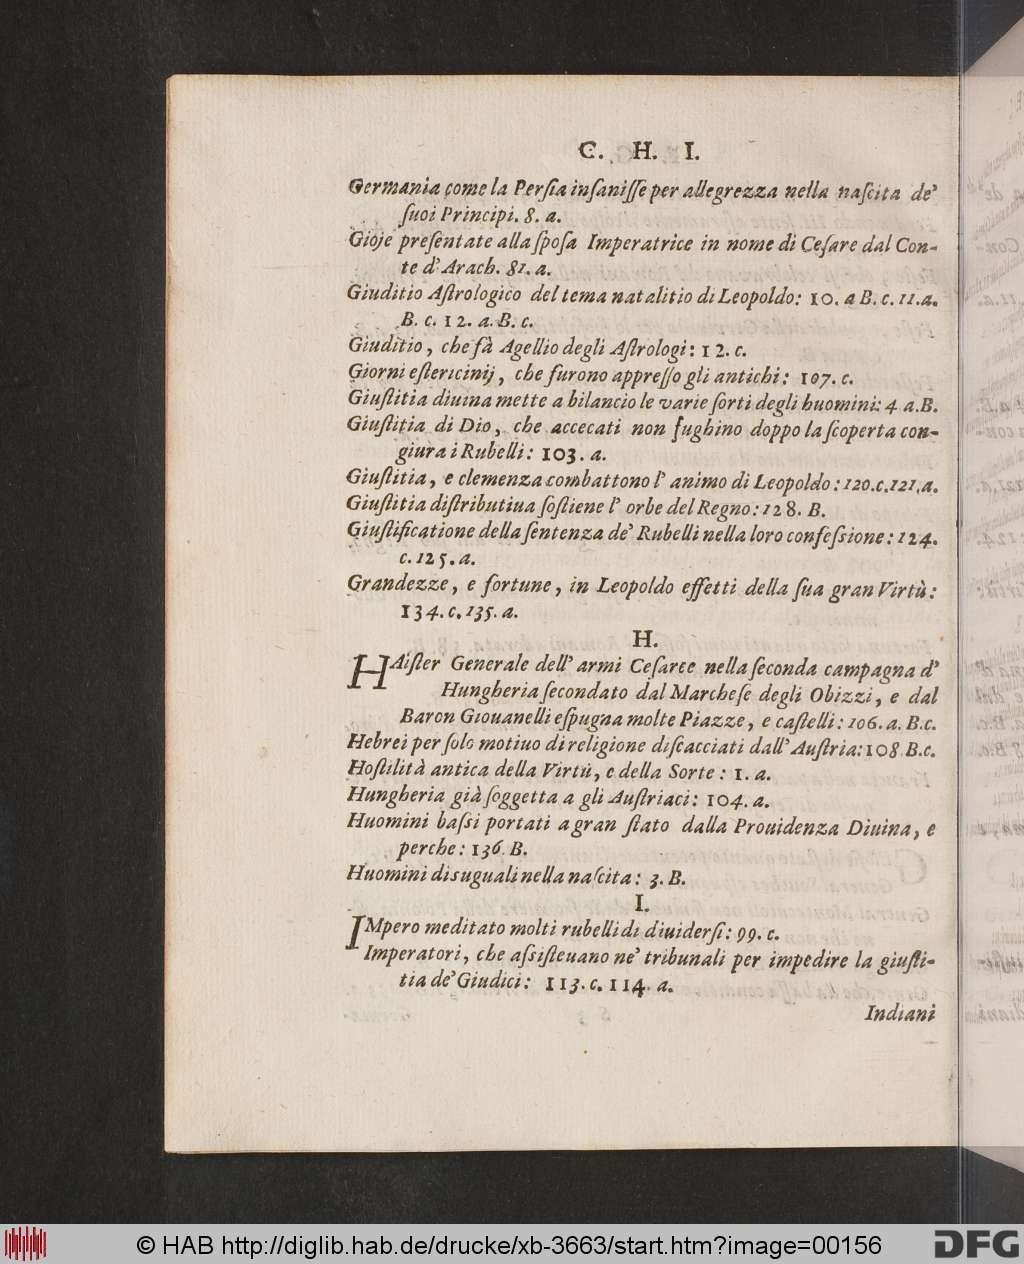 C. H. I.
Germania come la Persia insanisse per allegrezza nella nascita de'
suoi Principi. 8. a.
Gioje presentate alla sposa Imperatrice in nome di Cesare dal Con-
te d'Arach. 81. a.
Giuditio Astrologico del tema natalitio di Leopoldo: 10. a B. c. 11.a.
B. c. 12. a. B. c.
Giuditio, che fà Agellio degli Astrologi: 12. c.
Giorni estericinij, che furono appresso gli antichi: 107. c.
Giustitia diuina mette a bilancio le varie sorti degli huomini: 4 a.B.
Giustitia di Dio, che accecati non fughino doppo la scoperta con-
giura i Rubelli: 103. a.
Giustitia, e clemenza combattono l' animo di Leopoldo: 120.c.121.a.
Giustitia distributiua sostiene l' orbe del Regno: 128. B.
Giustificatione della sentenza de' Rubelli nella loro confessione: 124.
c. 125. a.
Grandezze, e fortune, in Leopoldo effetti della sua gran Virtù:
134. c. 135. a.
H.
HAister Generale dell' armi Cesaree nella seconda campagna d'
Hungheria secondato dal Marchese degli Obizzi, e dal
Baron Giouanelli espugna molte Piazze, e castelli: 106. a. B.c.
Hebrei per solo motiuo di religione discacciati dall' Austria: 108 B.c.
Hostilità antica della Virtù, e della Sorte: 1. a.
Hungheria già soggetta a gli Austriaci: 104. a.
Huomini bassi portati a gran stato dalla Prouidenza Diuina, e
perche: 136. B.
Huomini disuguali nella nascita: 3. B.
I.
IMpero meditato molti rubelli di diuidersi: 99. c.
Imperatori, che assisteuano ne' tribunali per impedire la giusti-
tia de' Giudici: 113. c. 114. a.
Indiani
© HAB http://diglib.hab.de/drucke/xb-3663/start.htm?image=00156
DFG